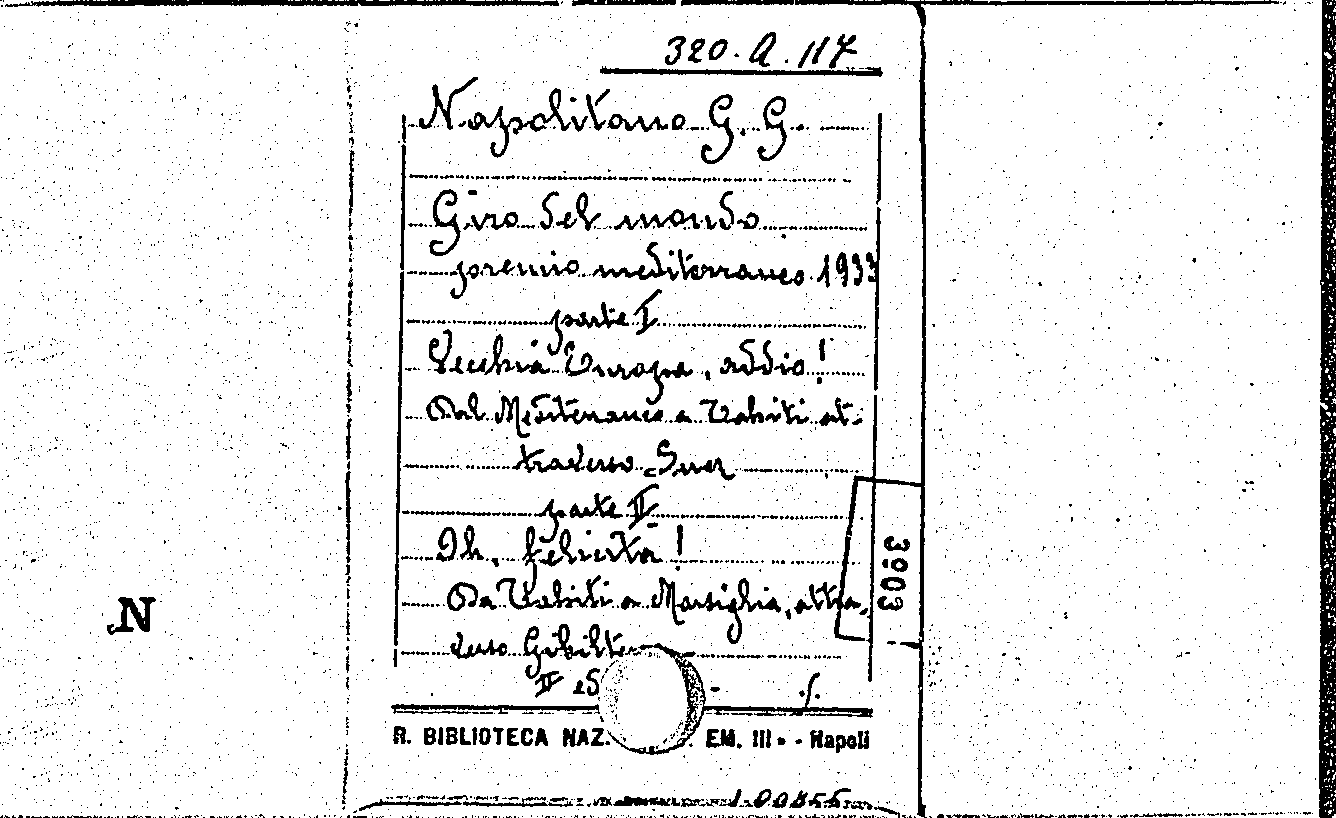 320.A.117
Napolitano G. G.
Giro del mondo
premio mediterraneo 1933
parte I
Vecchia Europa, addio!
Dal Mediterraneo a Tahiti at-
traverso Suez
parte II
Oh, felicità!
Da Tahiti a Marsiglia, attra-
verso Gibilter
II ed
R. BIBLIOTECA NAZ. EM. III - Napoli
3903
N